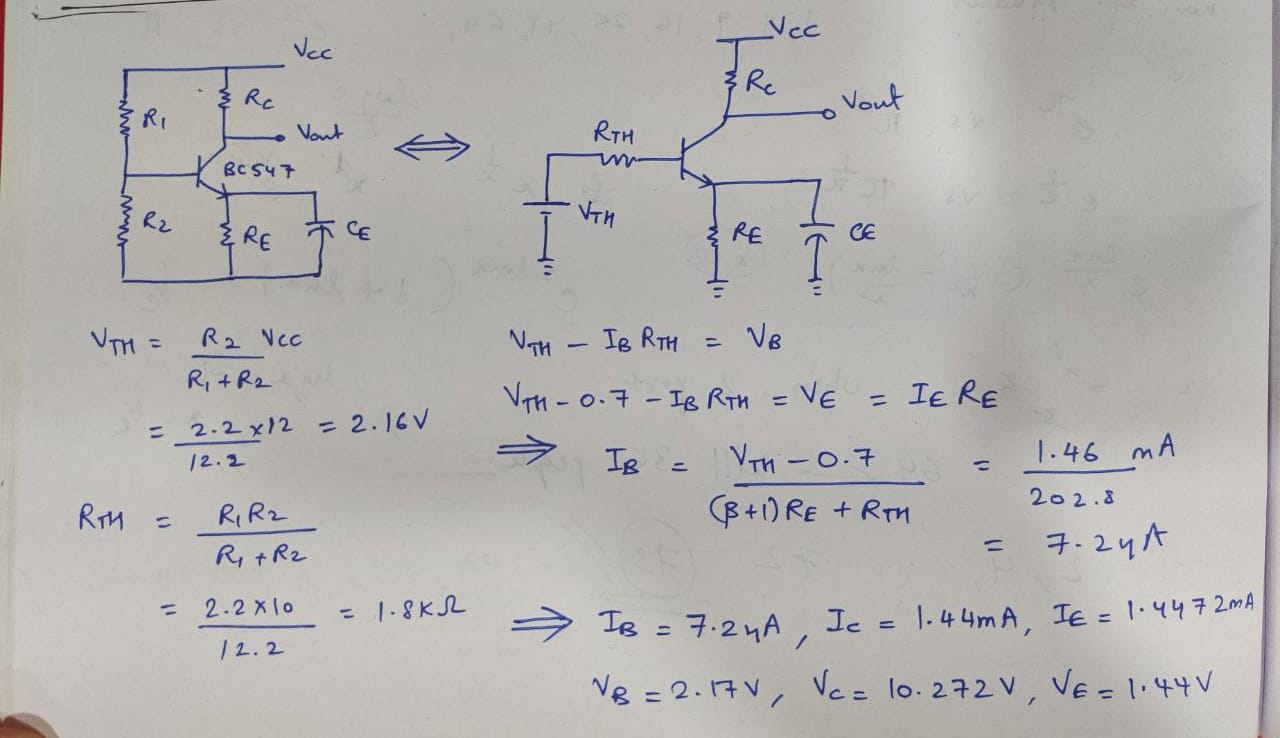 Vcc
R1
Rc
Vout
BC547
R2
RE
CE
⇔
Vcc
Rc
Vout
RTH
VTH
RE
CE
VTH = R2 Vcc / R1 + R2
= 2.2 x 12 / 12.2 = 2.16V
RTH = R1 R2 / R1 + R2
= 2.2 x 10 / 12.2 = 1.8KΩ
VTH - IB RTH = VB
VTH - 0.7 - IB RTH = VE = IE RE
⇒ IB = VTH - 0.7 / (β+1) RE + RTH = 1.46 mA / 202.8
= 7.2 μA
⇒ IB = 7.2 μA, Ic = 1.44mA, IE = 1.4472mA
VB = 2.17V, Vc = 10.272V, VE = 1.44V